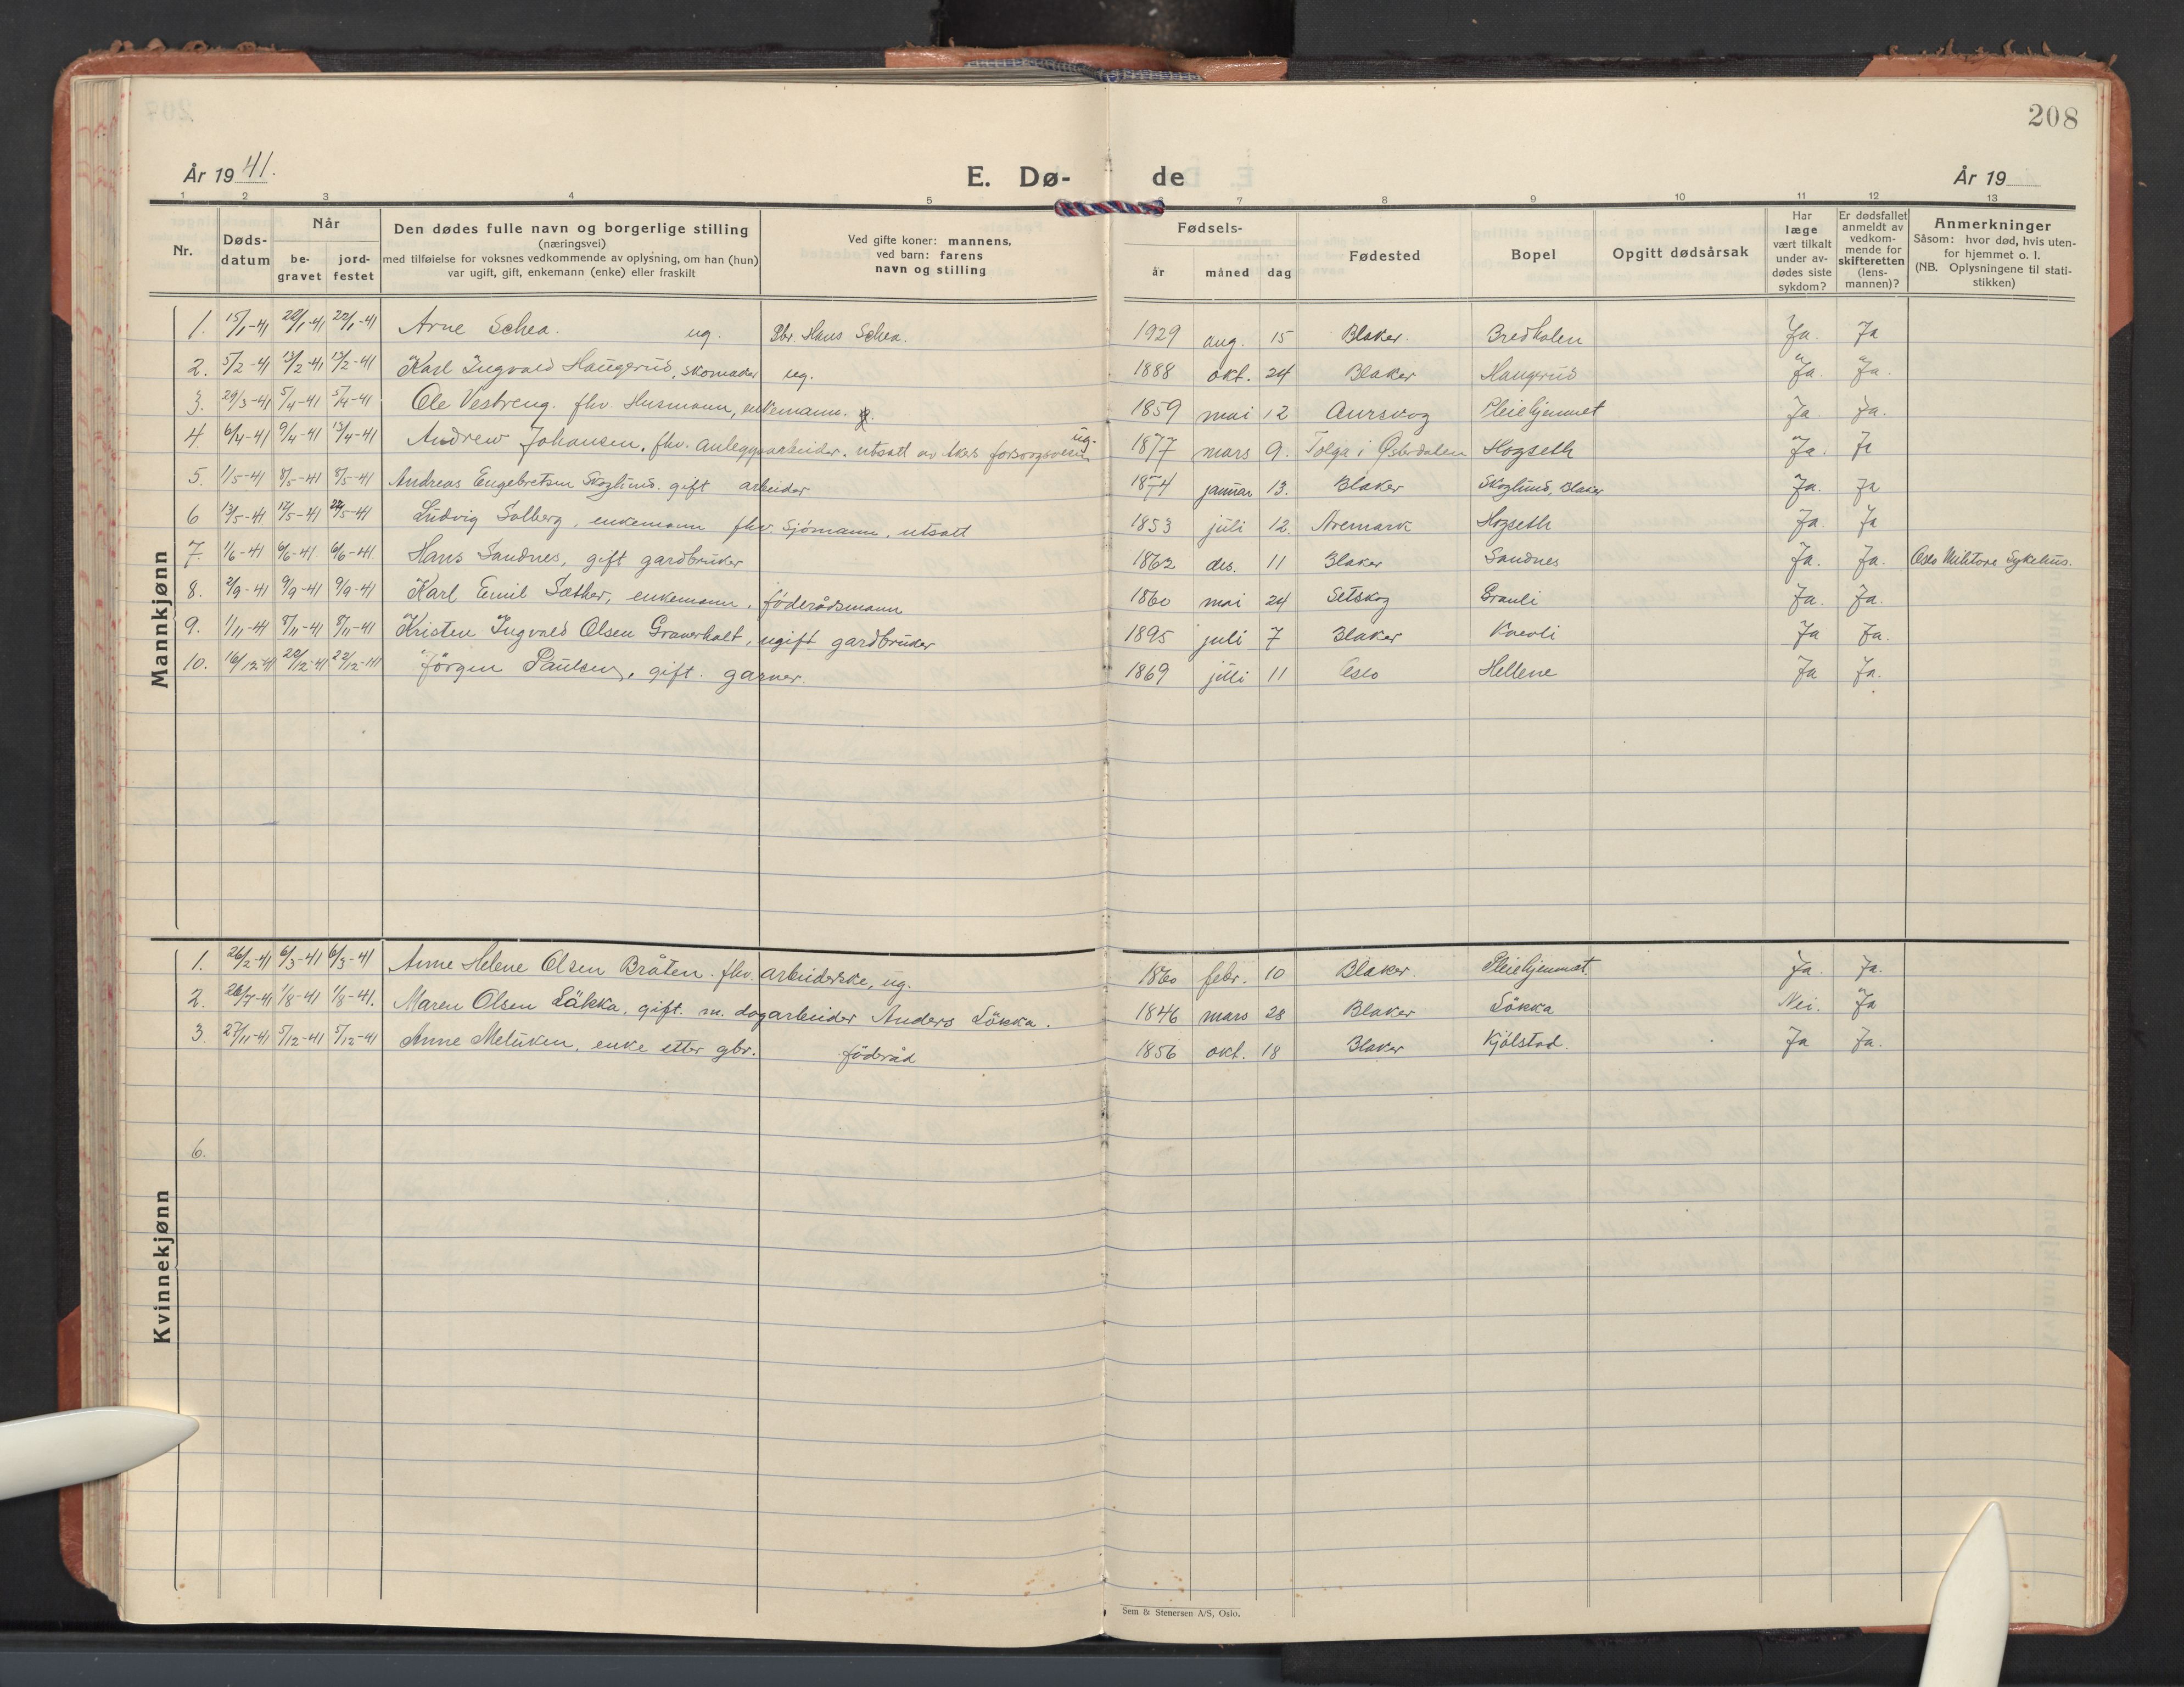 208
År 19 41.
E. Dø- de
År 19
1 2 3 4 5 6 7 8 9 10 11 12 13
Nr.
Døds-
datum
Når
be-
gravet
jord-
festet
Den dødes fulle navn og borgerlige stilling
(næringsvei)
med tilføielse for voksnes vedkommende av oplysning, om han (hun)
var ugift, gift, enkemann (enke) eller fraskilt
Ved gifte koner: mannens,
ved barn: farens
navn og stilling
Fødsels-
år måned dag
Fødested
Bopel
Opgitt dødsårsak
Har
læge
vært tilkalt
under av-
dødes siste
sykdom?
Er dødsfallet
anmeldt av
vedkom-
mende for
skifteretten
(lens-
mannen)?
Anmerkninger
Såsom: hvor død, hvis uten-
for hjemmet o. l.
(NB. Oplysningene til stati-
stikken)
Mannkjønn
1. 15/1-41 22/1-41 22/1-41 Arne Schea. ug. Gbr. Hans Schea. 1929 aug. 15 Blaker. Bredholen Ja. Ja
2. 5/2-41 13/2-41 13/2-41 Karl Ingvald Haugerud, skomaker ug. 1888 okt. 24 Blaker Haugerud Ja. Ja.
3. 29/3-41 5/4-41 5/4-41 Ole Vestreng. fhv. Husmann, enkemann. 1859 mai 12 Aurskog Pleiehjemmet Ja. Ja.
4 6/4-41 9/4-41 13/4-41 Andrew Johansen, fhv. anleggsarbeider. utsatt av Akers forsorgsvesen ug. 1877 mars 9. Tolga i Østerdalen Hogseth Ja. Ja
5. 1/5-41 8/5-41 8/5-41 Andreas Engebretsen Skoglund. gift arbeider 1874 januar 13. Blaker Skoglund, Blaker Ja. Ja
6 13/5-41 17/5-41 24/5-41 Ludvig Solberg, enkemann fhv. Sjömann, utsatt 1853 juli 12. Aremark Hogseth Ja. Ja
7. 1/6-41 6/6-41 6/6-41. Hans Sandnes, gift gardbruker 1862 des. 11 Blaker Sandnes Ja. Ja. Oslo Militære Sykehus.
8. 2/9-41 9/9-41 9/9-41 Karl Emil Sæther, enkemann. föderådsmann 1860 mai 24 Setskog Granli Ja. Ja.
9. 1/11-41 8/11-41 8/11-41 Kristen Ingvald Olsen Graverholt, ugift gardbruker 1895 juli 7 Blaker Kvevli Ja Ja.
10. 16/12-41 22/12-41 22/12-41 Jörgen Paulsen, gift. garver. 1869 juli 11 Oslo Hellene Ja Ja.
Kvinnekjønn
1. 26/2-41 6/3-41 6/3-41 Anne Helene Olsen Bråten. fhv. arbeiderske, ug. 1860 febr. 10 Blaker. Pleiehjemmet. Ja. Ja.
2. 26/7-41 1/8-41 1/8-41. Maren Olsen Läkka, gift. m. dagarbeider Anders Lökka. 1846 mars 28 Blaker Lökka Nei. Ja
3. 27/11-41 5/12-41 5/12-41 Anne Metuken, enke etter gbr. föderåd 1856 okt. 18 Blaker Kjölstad. Ja Ja.
6.
Sem & Stenersen A/S, Oslo.